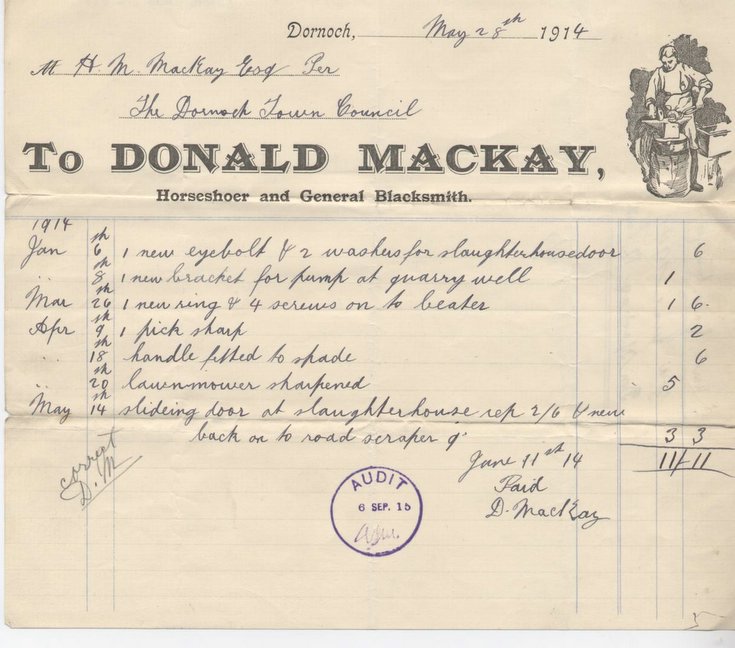 Dornoch, May 28th 1914
Mt H. M. MacKay Esq Per
The Dornoch Town Council
To DONALD MACKAY,
Horseshoer and General Blacksmith.
1914
Jan 6th 1 new eyebolt & 2 washers for slaughterhousedoor 6
.. 8th 1 new bracket for pump at quarry well 1
Mar 26th 1 new ring & 4 screws on to beater 1 6
Apr 9th 1 pick sharp 2
.. 18th handle fitted to spade 6
.. 20th lawn-mower sharpened 5
May 14th slideing door at slaughterhouse rep 2/6 & new
back on to road scraper 9d 3 3
11/ 11
correct
D. M
June 11st 14
Paid
D. MacKay
AUDIT
6 SEP. 15